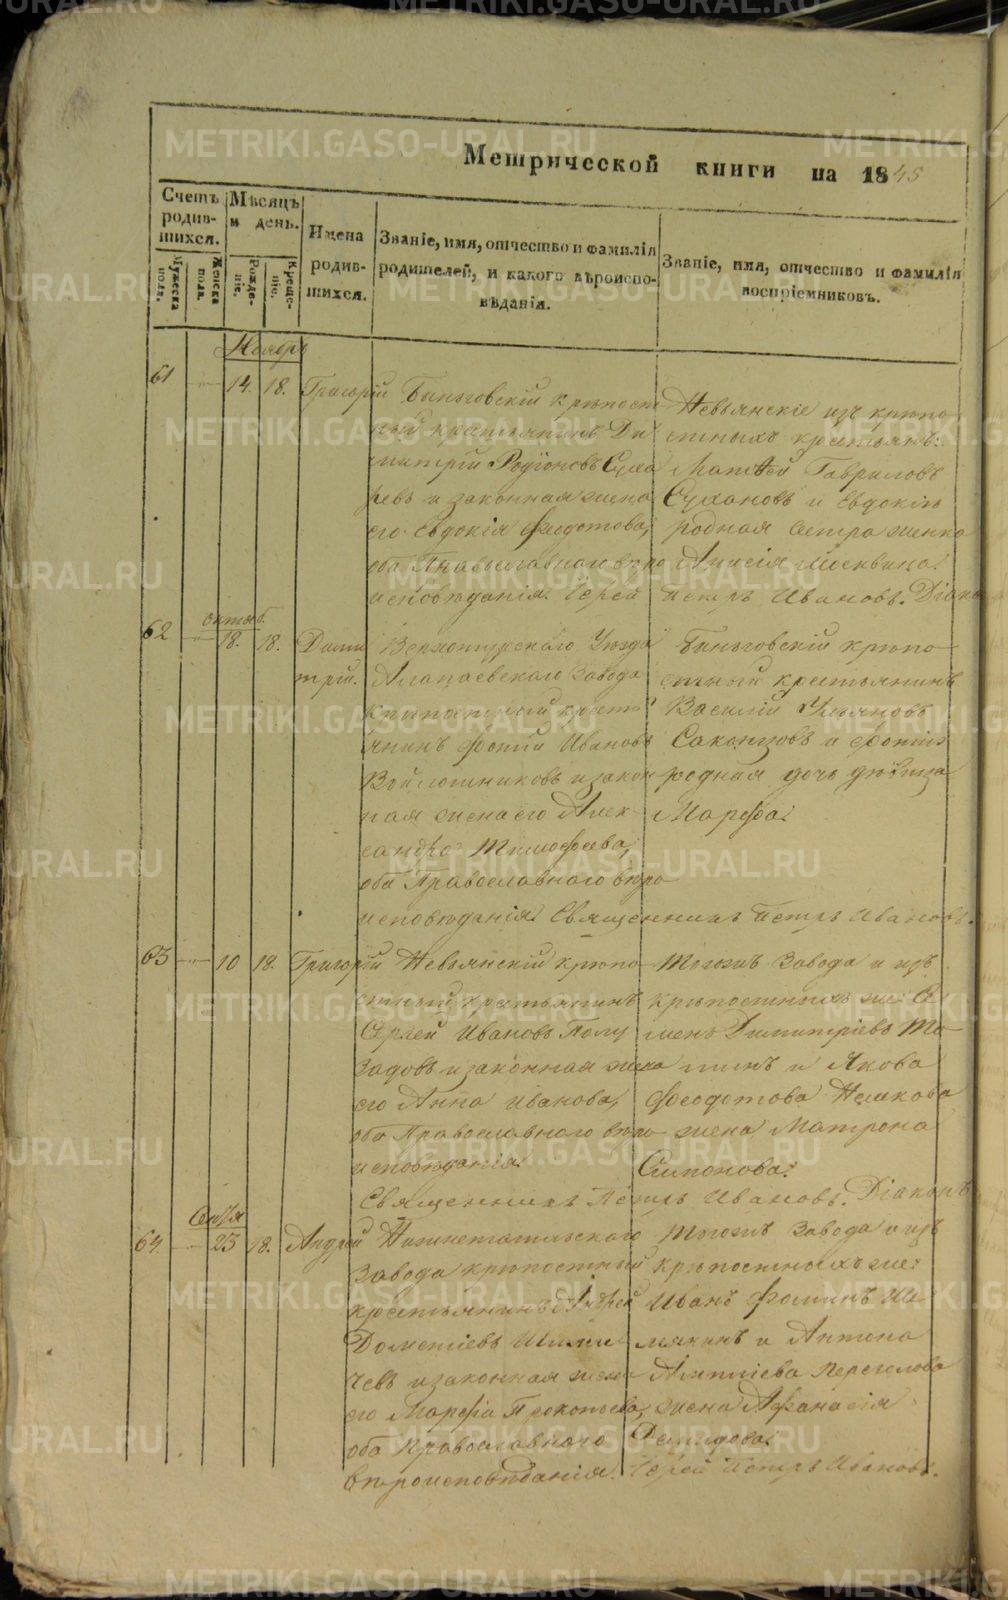 Метрической книги на 1845
Счетъ родившихся.
Мѣсяцъ и день.
Имена родившихся.
Званіе, имя, отчество и фамилія родителей, и какого вѣроисповѣданія.
Званіе, имя, отчество и фамилія воспріемниковъ.
Мужеска пола.
Женска пола.
Рожденіе.
Крещеніе.
Ноябрь
61 14. 18. Григорій
Быньговскій крѣпост
ный крестьянинъ Ди
митрій Родіоновъ Суха
ревъ и законная жена
его Евдокія Федотова,
оба Православнаго вѣро
исповѣданія. Іерей
Невьянскіе изъ крѣпо
стныхъ крестьянъ:
Матѳей Гавриловъ
Сухановъ и Евдокіи
родная сестра женка
Анисія Москвина.
Петръ Ивановъ. Діако
октяб.
62 18. 18. Дими
трій.
Верхотурскаго Уѣзда
Алапаевскаго Завода
Крѣпостный кресть
янинъ Фотій Ивановъ
Войлошниковъ и закон
ная жена его Алек
сандра Тимофѣева,
оба Православнаго вѣро
исповѣданія. Священникъ Петръ Ивановъ.
Быньговскій крѣпо
стный крестьянинъ
Василій Ульяновъ
родная дочь дѣвица
Марѳа.
63 10 18. Григорій
Невьянскій крѣпо
стный крестьянинъ
Сергей Ивановъ Полу
задовъ и законная жена
его Анна Иванова,
оба Православнаго вѣро
исповѣданія.
Священникъ Петръ Ивановъ. Діаконъ
Тогожъ Завода и изъ
крѣпостныхъ же: Се
менъ Димитріевъ
и Якова
Феодотова
жена Матрона
Симонова.
Сентя
64 23 18. Андрей
Нижнетагильскаго
Завода крѣпостный
крестьянинъ Андрей
Дометіевъ
чевъ и законная жена
его Марѳа Прокопьева,
оба Православнаго
вѣроисповѣданія. Іерей Петръ Ивановъ.
Тогожъ Завода и изъ
Крѣпостныхъ же:
Иванъ Фоминъ Ше
мякинъ и Антона
жена Афанасія
Демидова.
METRIKI.GASO-URAL.RU